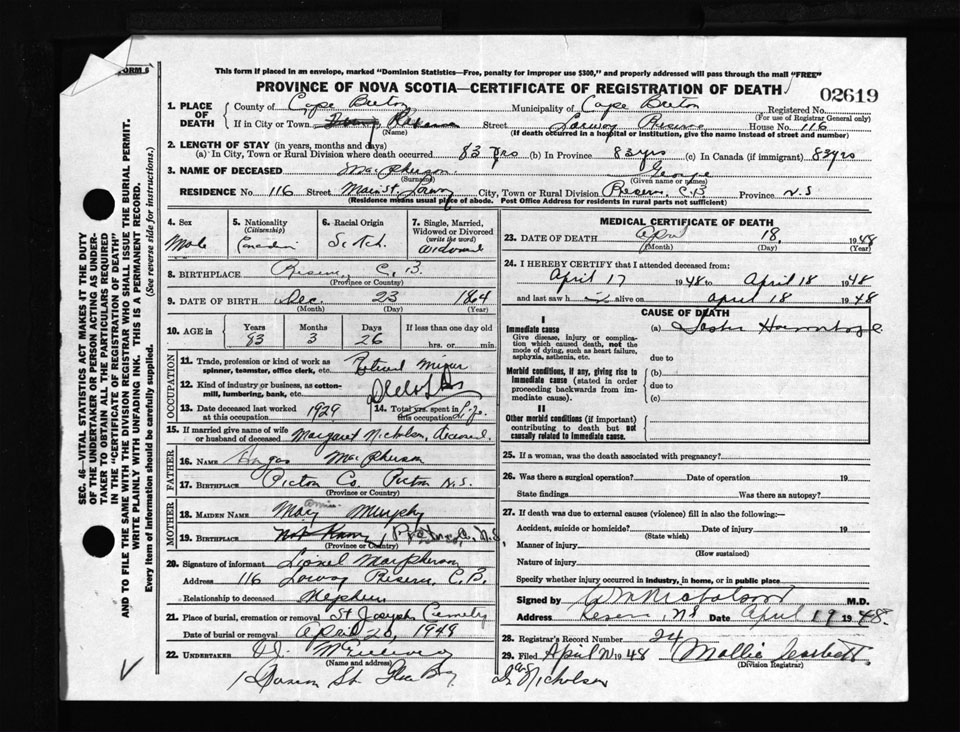 FORM 6
This form if placed in an envelope, marked "Dominion Statistics—Free, penalty for improper use $300," and properly addressed will pass through the mail "FREE"
PROVINCE OF NOVA SCOTIA—CERTIFICATE OF REGISTRATION OF DEATH
02619
1. PLACE OF DEATH
County of Cape Breton Municipality of Cape Breton Registered No.
(For use of Registrar General only)
If in City or Town Reserve Street Lorway Reserve House No. 116
(Name) (If death occurred in a hospital or institution, give the name instead of street and number)
2. LENGTH OF STAY (in years, months and days)
(a) In City, Town or Rural Division where death occurred 83 yrs (b) In Province 83 yrs (c) In Canada (if immigrant) 83 yrs
3. NAME OF DECEASED MacPherson George
(Surname) (Given name or names)
RESIDENCE No. 116 Street Main St. Lorway City, Town or Rural Division Reserve, C.B Province N.S
(Residence means usual place of abode. Post Office Address for residents in rural parts not sufficient)
4. Sex Male
5. Nationality (Citizenship) Canadian
6. Racial Origin Scotch
7. Single, Married, Widowed or Divorced (write the word) Widowed
8. BIRTHPLACE Reserve, C.B.
(Province or Country)
9. DATE OF BIRTH Dec. 23 1864
(Month) (Day) (Year)
10. AGE in Years Months Days If less than one day old
83 3 26 hrs. or min.
OCCUPATION
11. Trade, profession or kind of work as spinner, teamster, office clerk, etc. Retired Miner
12. Kind of industry or business, as cotton-mill, lumbering, bank, etc.
13. Date deceased last worked at this occupation 1929
14. Total yrs. spent in this occupation Life.
15. If married give name of wife or husband of deceased Margaret Nicholson, deceased
FATHER
16. NAME Angus MacPherson
17. BIRTHPLACE Pictou Co. Pictou N.S.
(Province or Country)
MOTHER
18. MAIDEN NAME Mary Murphy
19. BIRTHPLACE Not Known N.S
(Province or Country)
20. Signature of informant Lionel MacPherson
Address 116 Lorway Reserve, C.B.
Relationship to deceased Nephew
21. Place of burial, cremation or removal St Joseph Cemetery
Date of burial or removal April 20, 1949
22. UNDERTAKER
(Name and address)
St. Glace Bay
MEDICAL CERTIFICATE OF DEATH
23. DATE OF DEATH April 18. 1948
(Month) (Day) (Year)
24. I HEREBY CERTIFY that I attended deceased from:
April 17 1948 to April 18 1948
and last saw him alive on April 18 1948
CAUSE OF DEATH
I
Immediate cause (a) Hemorrhage
Give disease, injury or complication which caused death, not the mode of dying, such as heart failure, asphyxia, asthenia, etc.
due to
Morbid conditions, if any, giving rise to immediate cause (stated in order proceeding backwards from immediate cause).
(b)
due to
(c)
II
Other morbid conditions (if important) contributing to death but not causally related to immediate cause.
25. If a woman, was the death associated with pregnancy?
26. Was there a surgical operation? Date of operation 19
State findings Was there an autopsy?
27. If death was due to external causes (violence) fill in also the following:—
Accident, suicide or homicide? Date of injury 19
(State which)
Manner of injury
(How sustained)
Nature of injury
Specify whether injury occurred in industry, in home, or in public place
Signed by M.D.
Address Reserve, NS Date April 19 1948.
28. Registrar's Record Number 24
29. Filed April 1948 Mollie Corbett
(Division Registrar)
Nicholson
SEC. 46—VITAL STATISTICS ACT MAKES IT THE DUTY OF THE UNDERTAKER OR PERSON ACTING AS UNDERTAKER TO OBTAIN ALL THE PARTICULARS REQUIRED IN THE "CERTIFICATE OF REGISTRATION OF DEATH" AND TO FILE THE SAME WITH THE DIVISION REGISTRAR WHO SHALL ISSUE THE BURIAL PERMIT.
WRITE PLAINLY WITH UNFADING INK. THIS IS A PERMANENT RECORD.
Every item of information should be carefully supplied. (See reverse side for instructions.)